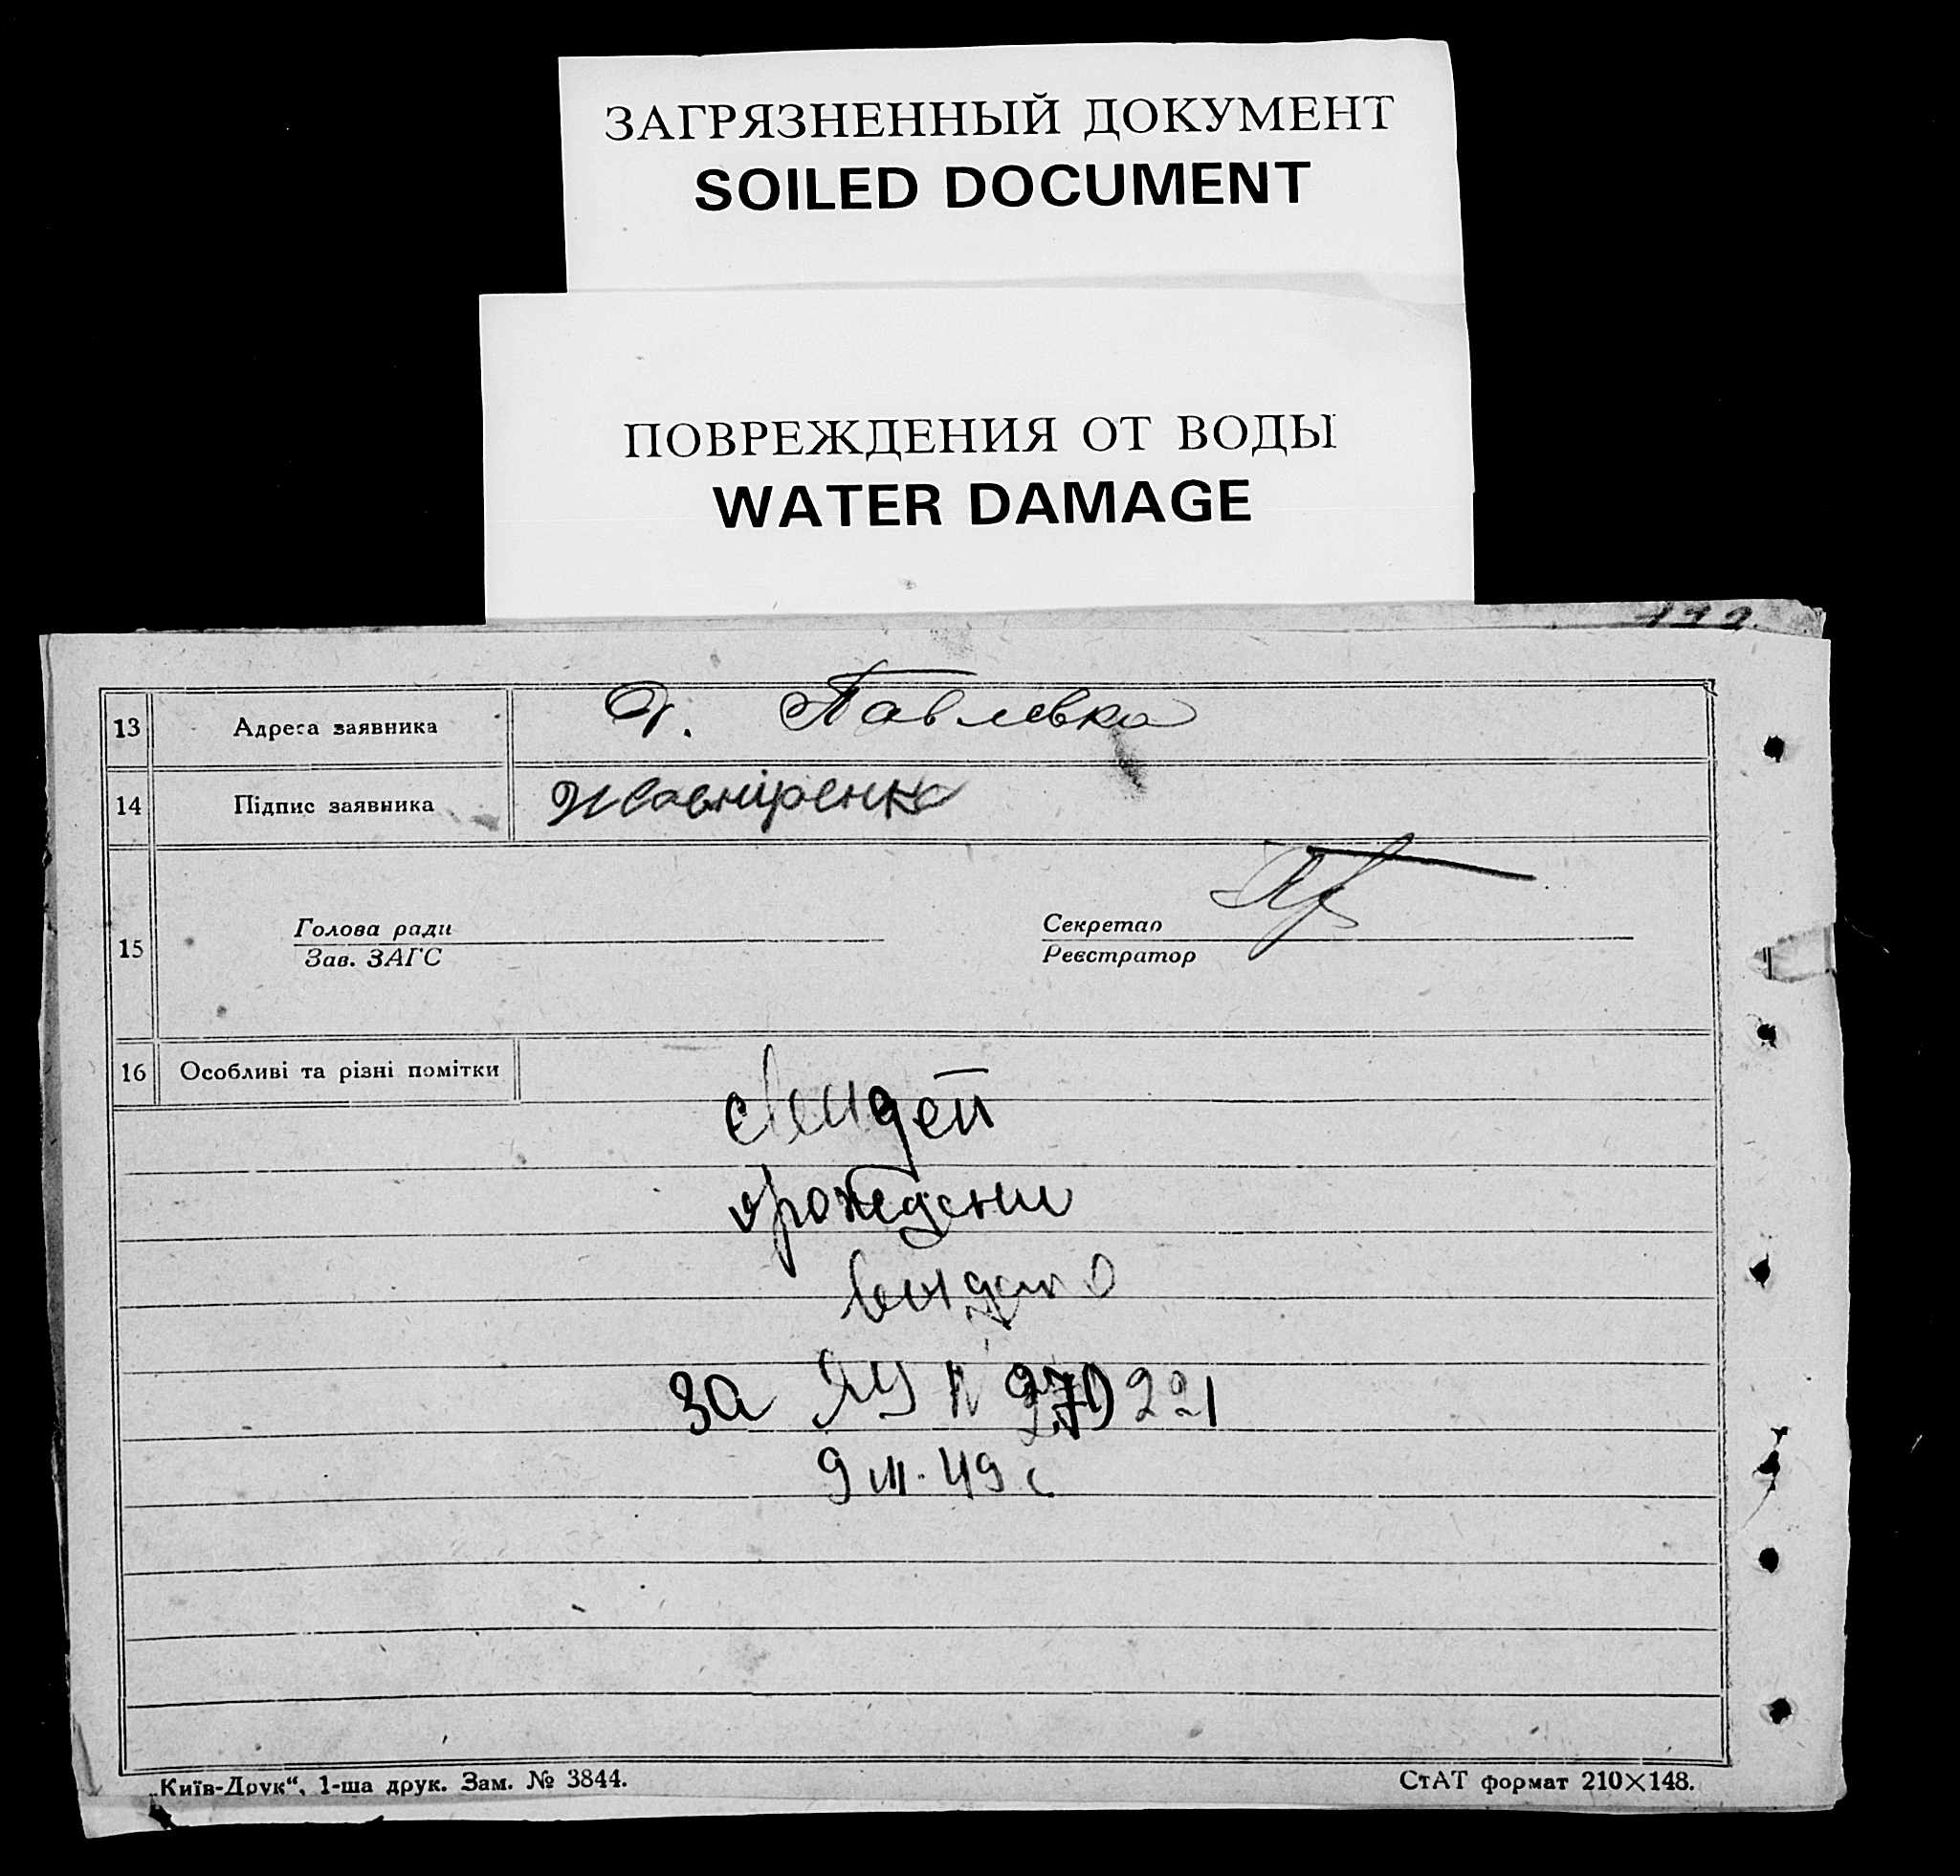 ЗАГРЯЗНЕННЫЙ ДОКУМЕНТ
SOILED DOCUMENT
ПОВРЕЖДЕНИЯ ОТ ВОДЫ
WATER DAMAGE
13 Адреса заявника Павлівка
14 Підпис заявника
15 Голова ради Секретар
Зав. ЗАГС Реєстратор
16 Особливі та різні помітки
рождении
выдано
за ЯУ N 270221
9 III. 49 г.
„Київ-Друк“, 1-ша друк. Зам. № 3844. СтАТ формат 210×148.